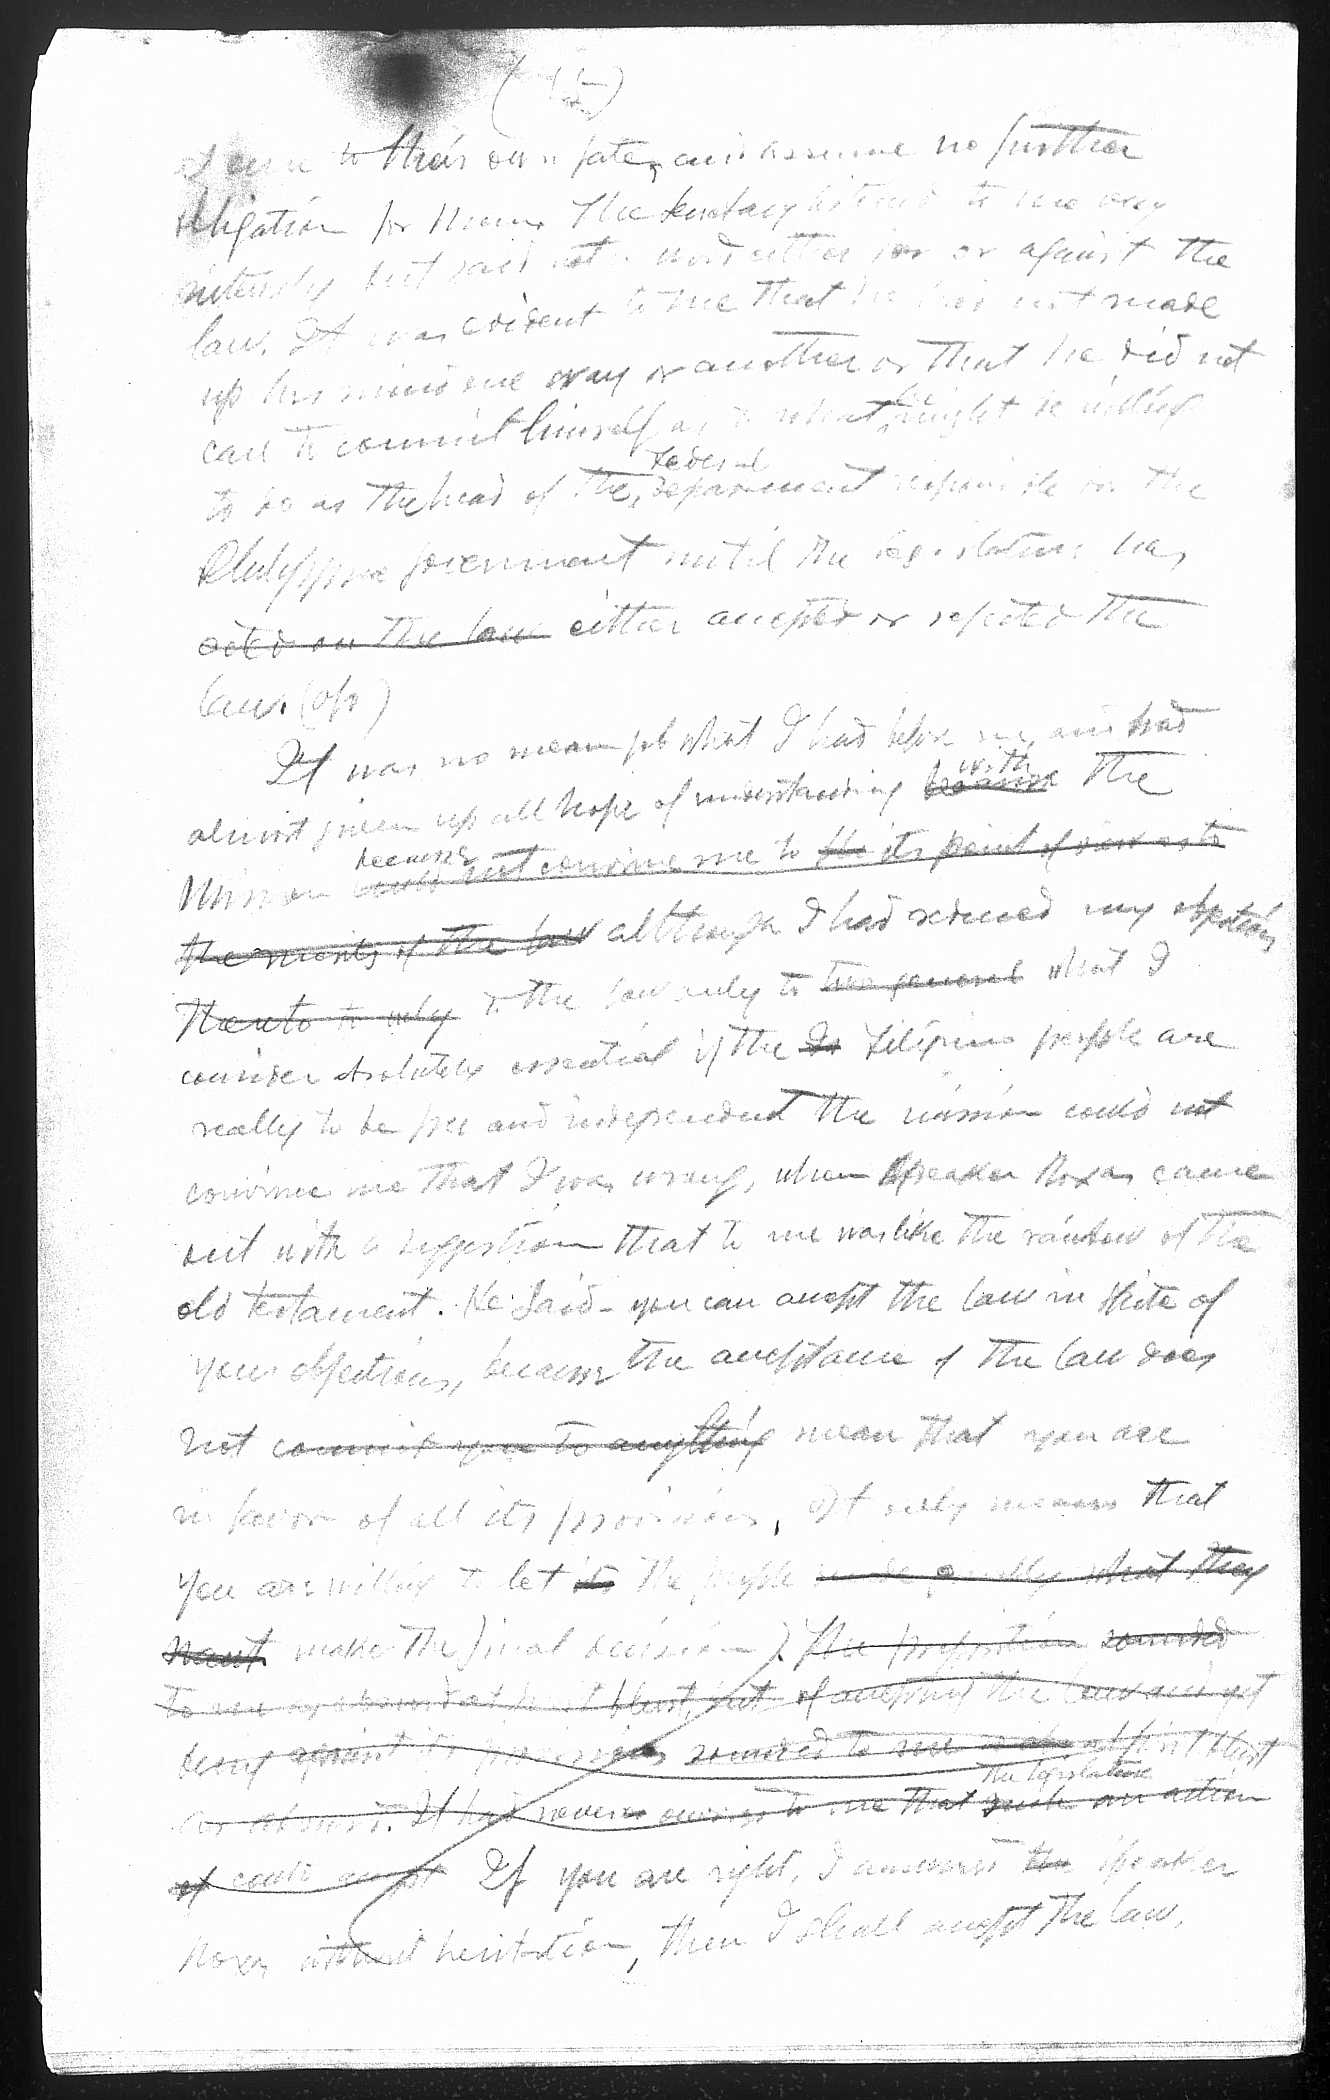 (15)
to their own fate, and assume no further
obligation for them. The Secretary listened to me very
intensely but said not a word either for or against the
law. It was evident to me that he had not made
up his mind one way or another or that he did not
care to commit himself as to what he might be willing
to do as the head of the Federal department responsible for the
Philippine government until the legislature has
acted on the law either accepted or rejected the
law. (o/o)
It was no mean job what I had before me, and had
almost given up all hope of understanding because with the
Mission because could not convince me to the its point of view as to
the merits of the law although I had reduced my objections
thereto to only to the law only to two general what I
consider absolutely essential if the Filipino people are
really to be free and independent the mission could not
convince me that I was wrong, when Speaker Roxas came
out with a suggestion that to me was like the rainbow of the
old testament. He said - you can accept the law in spite of
your objections, because the acceptance of the law does
not commit you to anything mean that you are
in favor of all its provisions. It only means that
you are willing to let its the people decide finally what they
want make the final decision. The proposition sounded
to me as absurd at first blush, but of accepting the law and yet
being against its provisions sounded to me at first blush
as absurd. It had never occurred to me that such the legislature an action
of could accept If you are right, I answered the speaker
Roxas without hesitation, then I shall accept the law.